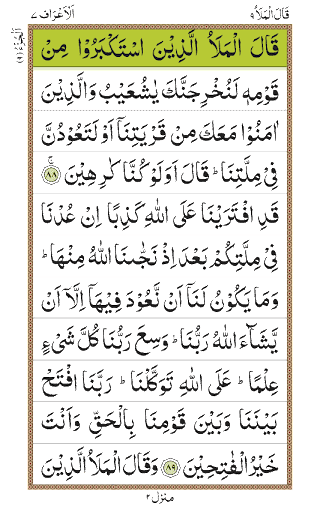 قَالَ الْمَلَاُ ٩
اَلْاَعْرَاف ٧
اَلْجُزْءُ (٩)
قَالَ الْمَلَاُ الَّذِيْنَ اسْتَكْبَرُوْا مِنْ
قَوْمِهٖ لَنُخْرِجَنَّكَ يٰشُعَيْبُ وَالَّذِيْنَ
اٰمَنُوْا مَعَكَ مِنْ قَرْيَتِنَاۤ اَوْ لَتَعُوْدُنَّ
فِيْ مِلَّتِنَا ؕ قَالَ اَوَلَوْ كُنَّا كٰرِهِيْنَ ۟ۚ ﴿٨٨﴾
قَدِ افْتَرَيْنَا عَلَى اللّٰهِ كَذِبًا اِنْ عُدْنَا
فِيْ مِلَّتِكُمْ بَعْدَ اِذْ نَجّٰىنَا اللّٰهُ مِنْهَا ؕ
وَمَا يَكُوْنُ لَنَاۤ اَنْ نَّعُوْدَ فِيْهَاۤ اِلَّاۤ اَنْ
يَّشَآءَ اللّٰهُ رَبُّنَا ؕ وَسِعَ رَبُّنَا كُلَّ شَيْءٍ
عِلْمًا ؕ عَلَى اللّٰهِ تَوَكَّلْنَا ؕ رَبَّنَا افْتَحْ
بَيْنَنَا وَبَيْنَ قَوْمِنَا بِالْحَقِّ وَاَنْتَ
خَيْرُ الْفٰتِحِيْنَ ﴿٨٩﴾ وَقَالَ الْمَلَاُ الَّذِيْنَ
منزل ٢